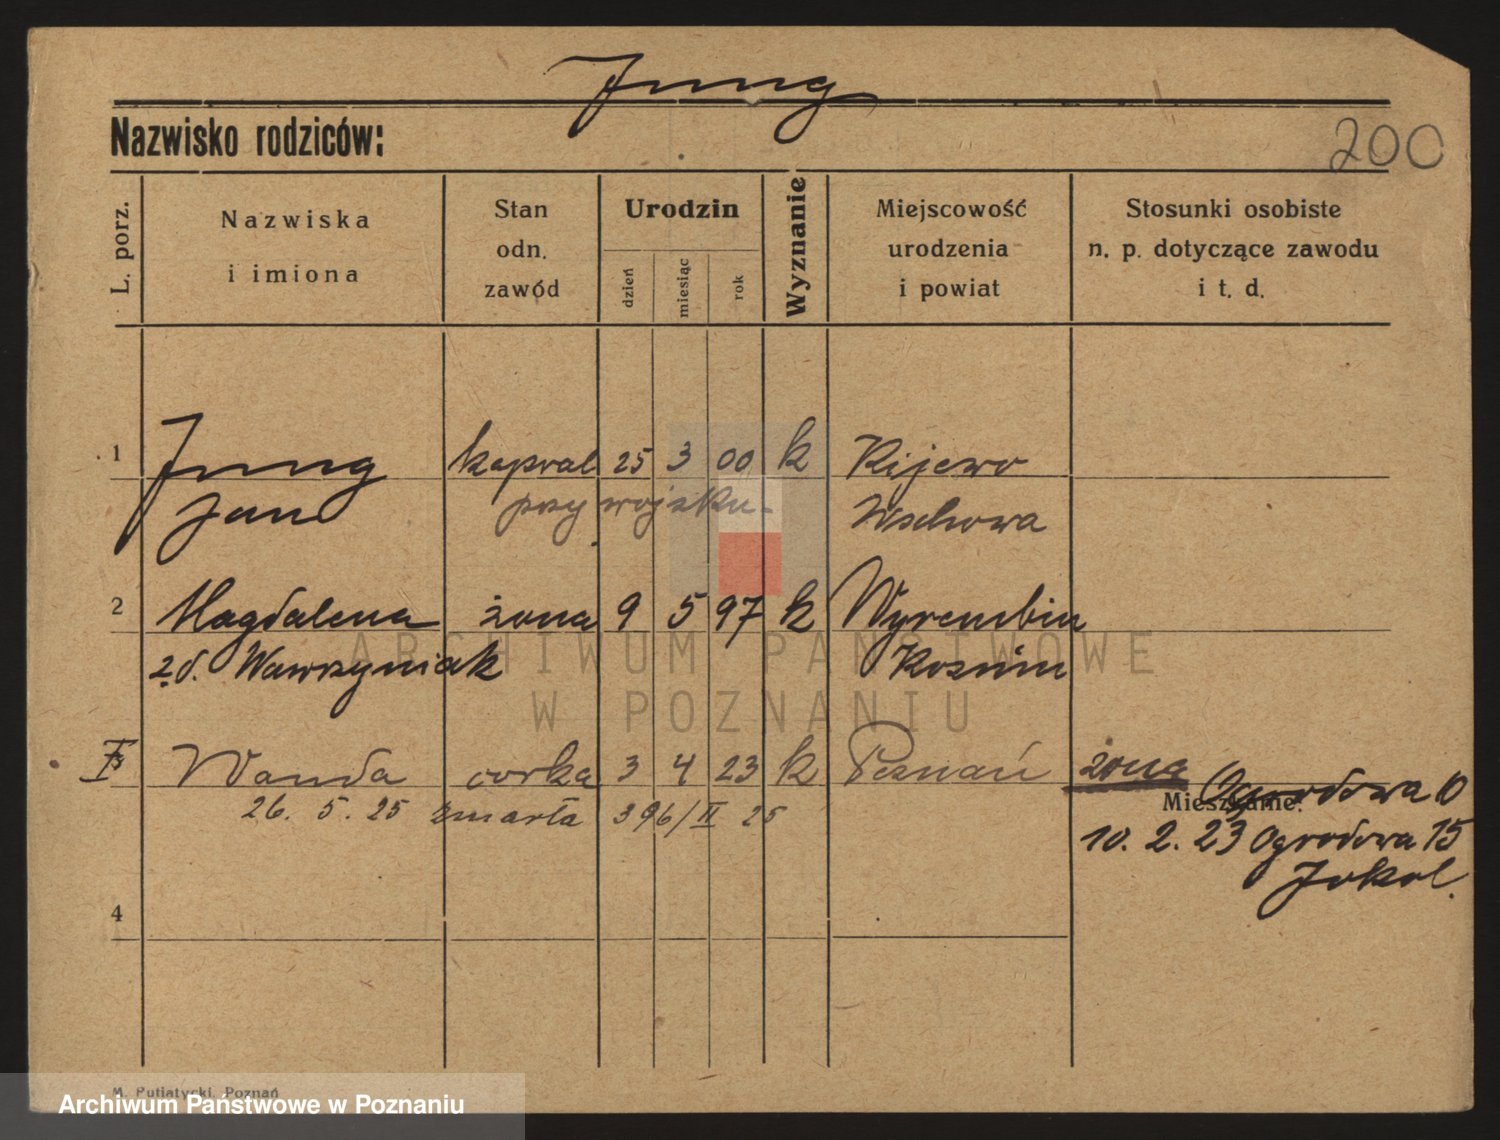 Jung
Nazwisko rodziców:
200
L. porz.
Nazwiska
i imiona
Stan
odn.
zawód
Urodzin
dzień
miesiąc
rok
Wyznanie
Miejscowość
urodzenia
i powiat
Stosunki osobiste
n. p. dotyczące zawodu
i t. d.
1 Jung kapral 25 3 00 k Kijewo
Jan przy wojsku. Wschowa
2 Magdalena żona 9 5 97 k Wyrembin
z d. Wawrzyniak Kozmin
3 Wanda corka 3 4 23 k Poznań żona
Mieszkanie: Ogrodowa 10
26. 5. 25 zmarła 396/II 25
10. 2. 23 Ogrodowa 15
Jokol.
4
ARCHIWUM PAŃSTWOWE
W POZNANIU
M. Putiatycki, Poznań
Archiwum Państwowe w Poznaniu